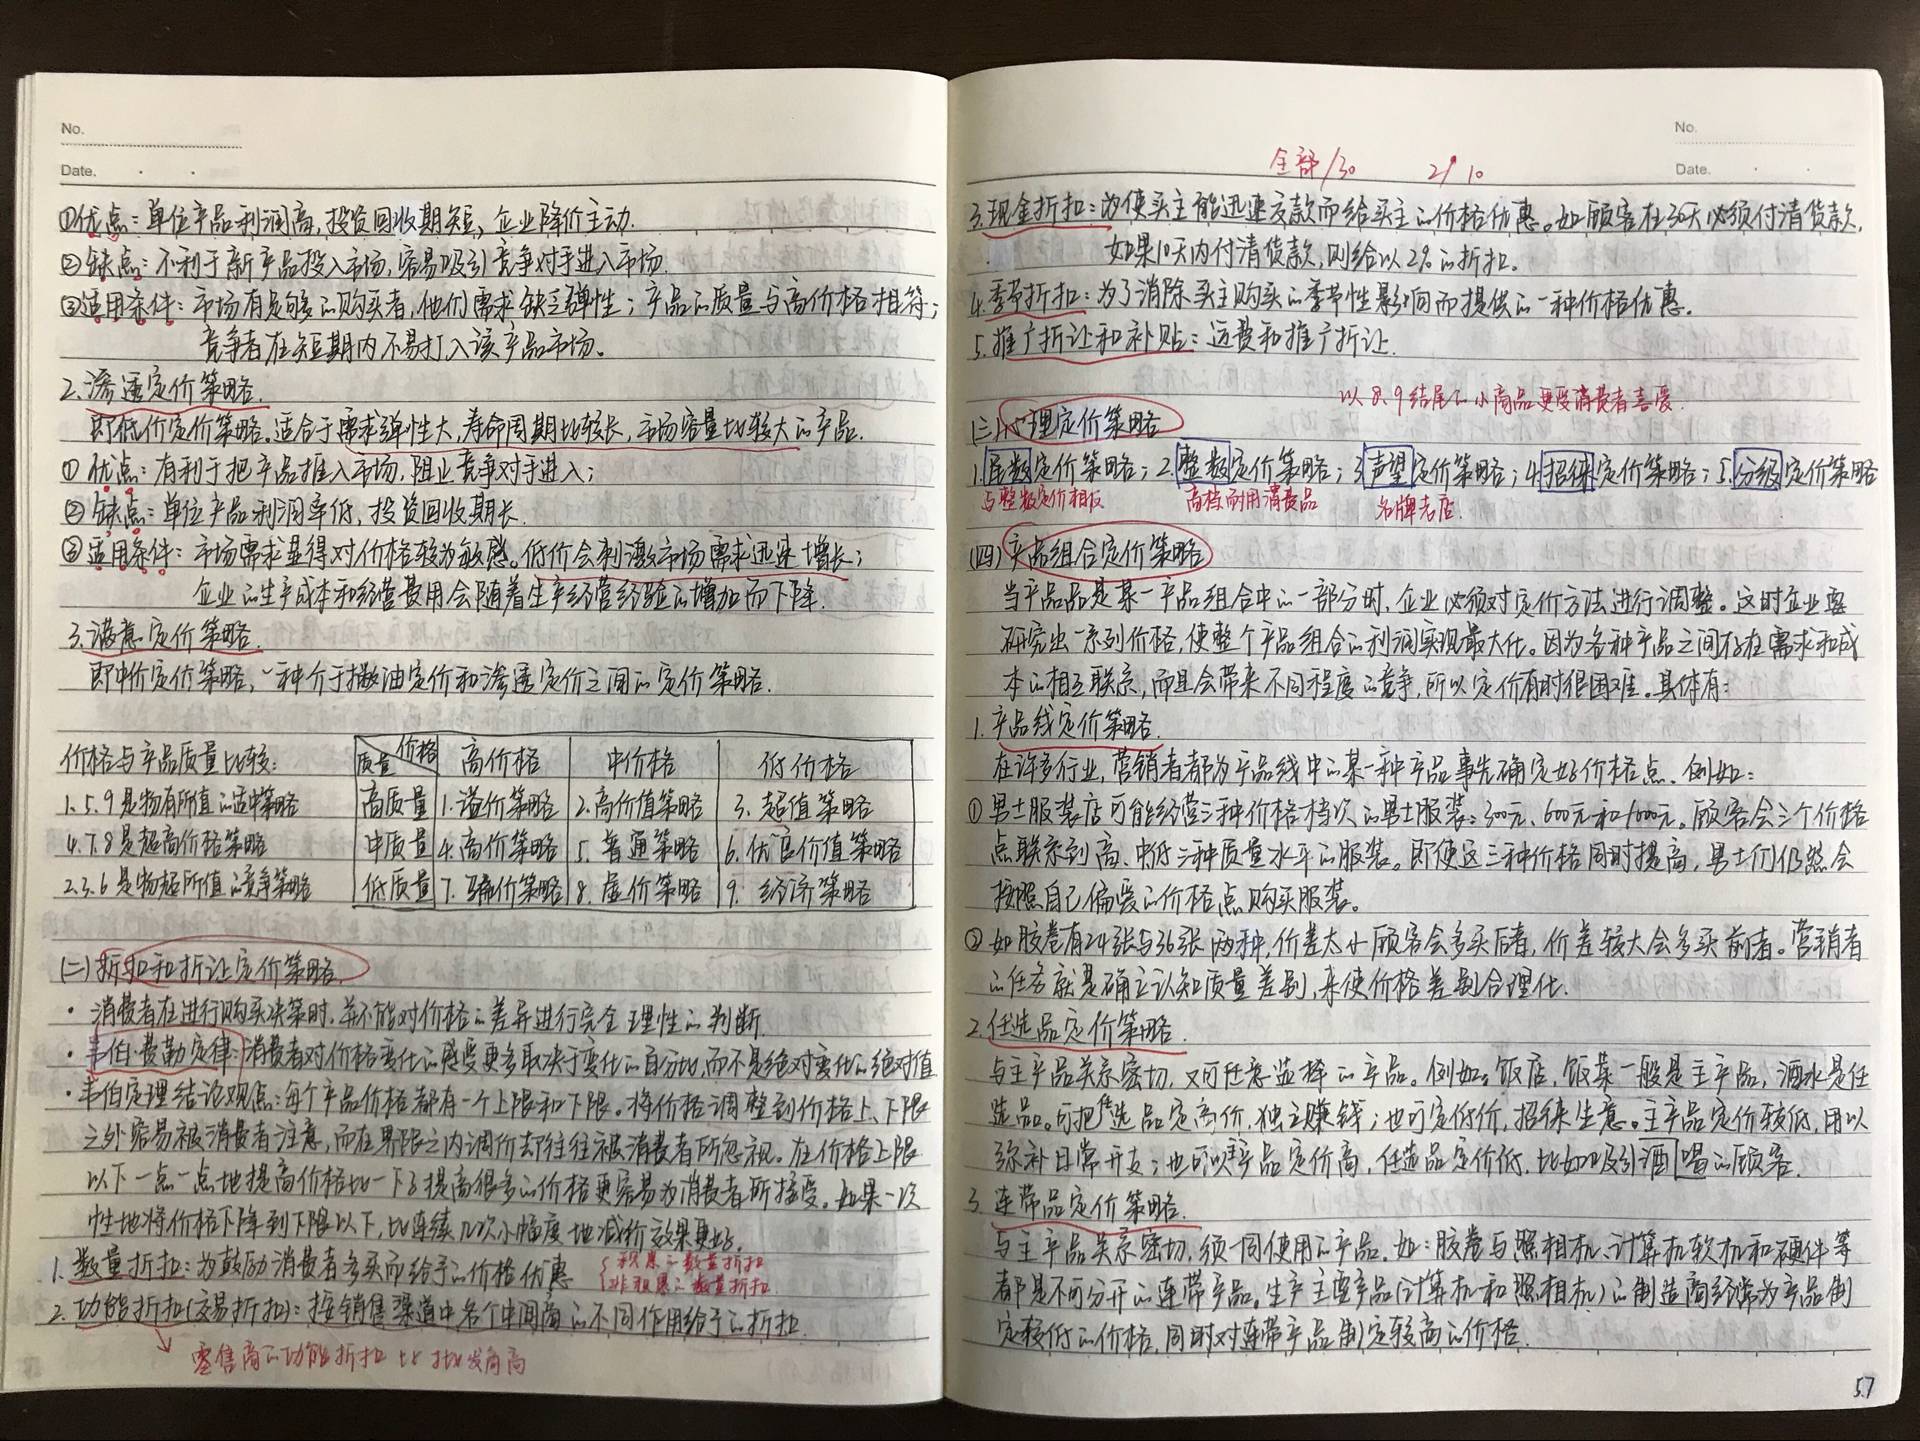 No.
Date.
①优点：单位产品利润高，投资回收期短，企业降价主动.
②缺点：不利于新产品投入市场，容易吸引竞争对手进入市场.
③适用条件：市场有足够的购买者，他们需求缺乏弹性；产品的质量与高价格相符；
竞争者在短期内不易打入该产品市场。
2.渗透定价策略.
即低价定价策略。适合于需求弹性大，寿命周期比较长，市场容量比较大的产品.
①优点：有利于把产品推入市场，阻止竞争对手进入；
②缺点：单位产品利润率低，投资回收期长.
③适用条件：市场需求显得对价格较为敏感。低价会刺激市场需求迅速增长；
企业的生产成本和经营费用会随着生产经营经验的增加而下降.
3.满意定价策略.
即中价定价策略，一种介于撇油定价和渗透定价之间的定价策略.
价格与产品质量比较：
1.5.9是物有所值的适中策略
4.7.8是超高价格策略
2.3.6是物超所值的竞争策略
质量 价格 高价格 中价格 低价格
高质量 1.溢价策略 2.高价值策略 3.超值策略
中质量 4.高价策略 5.普通策略 6.优良价值策略
低质量 7.骗价策略 8.虚价策略 9.经济策略
(二)折扣和折让定价策略.
·消费者在进行购买决策时，并不能对价格的差异进行完全理性的判断.
·韦伯·费勒定律：消费者对价格变化的感受更多取决于变化的百分比，而不是绝对变化的绝对值
·韦伯定理结论观点：每个产品价格都有一个上限和下限。将价格调整到价格上、下限
之外容易被消费者注意，而在界限之内调价却往往被消费者所忽视。在价格上限
以下一点一点地提高价格比一下子提高很多的价格更容易为消费者所接受。如果一次
性地将价格下降到下限以下，比连续几次小幅度地减价效果更好。
1.数量折扣：为鼓励消费者多买而给予的价格优惠 {积累的数量折扣
非积累的数量折扣.
2.功能折扣(交易折扣)：按销售渠道中各个中间商的不同作用给予的折扣.
零售商的功能折扣 比 批发商高
No.
Date.
全部/30 2/10
3.现金折扣：为使买主能迅速交款而给买主的价格优惠。如顾客在30天必须付清货款，
如果10天内付清货款，则给以2%的折扣。
4.季节折扣：为了消除买主购买的季节性影响而提供的一种价格优惠.
5.推广折让和补贴：运费和推广折让.
以8.9结尾的小商品更受消费者喜爱.
(三)心理定价策略
1.尾数定价策略；2.整数定价策略；3.声望定价策略；4.招徕定价策略；5.分级定价策略
与整数定价相反 高档耐用消费品 名牌老店.
(四)产品组合定价策略
当产品品是某一产品组合中的一部分时，企业必须对定价方法进行调整。这时企业要
研究出一系列价格，使整个产品组合的利润实现最大化。因为各种产品之间存在需求和成
本的相互联系，而且会带来不同程度的竞争，所以定价有时很困难。具体有：
1.产品线定价策略.
在许多行业，营销者都为产品线中的某一种产品事先确定好价格点.例如：
①男士服装店可能经营三种价格档次的男士服装：300元、600元和1000元。顾客会三个价格
点联系到高、中低三种质量水平的服装。即使这三种价格同时提高，男士们仍然会
按照自己偏爱的价格点购买服装。
②如胶卷有24张与36张两种，价差太小顾客会多买后者，价差较大会多买前者。营销者
的任务就是确立认知质量差别，来使价格差别合理化.
2.任选品定价策略.
与主产品关系密切，又可任意选择的产品。例如：饭店，饭菜一般是主产品，酒水是任
选品。可把任选品定高价，独立赚钱；也可定低价，招徕生意。主产品定价较低，用以
弥补日常开支；也可以主产品定价高，任选品定价低，比如吸引酒喝的顾客.
3.连带品定价策略.
与主产品关系密切，须一同使用的产品.如：胶卷与照相机、计算机软机和硬件等
都是不可分开的连带产品。生产主要产品(计算机和照相机)的制造商经常为产品制
定较低的价格，同时对连带产品制定较高的价格.
57